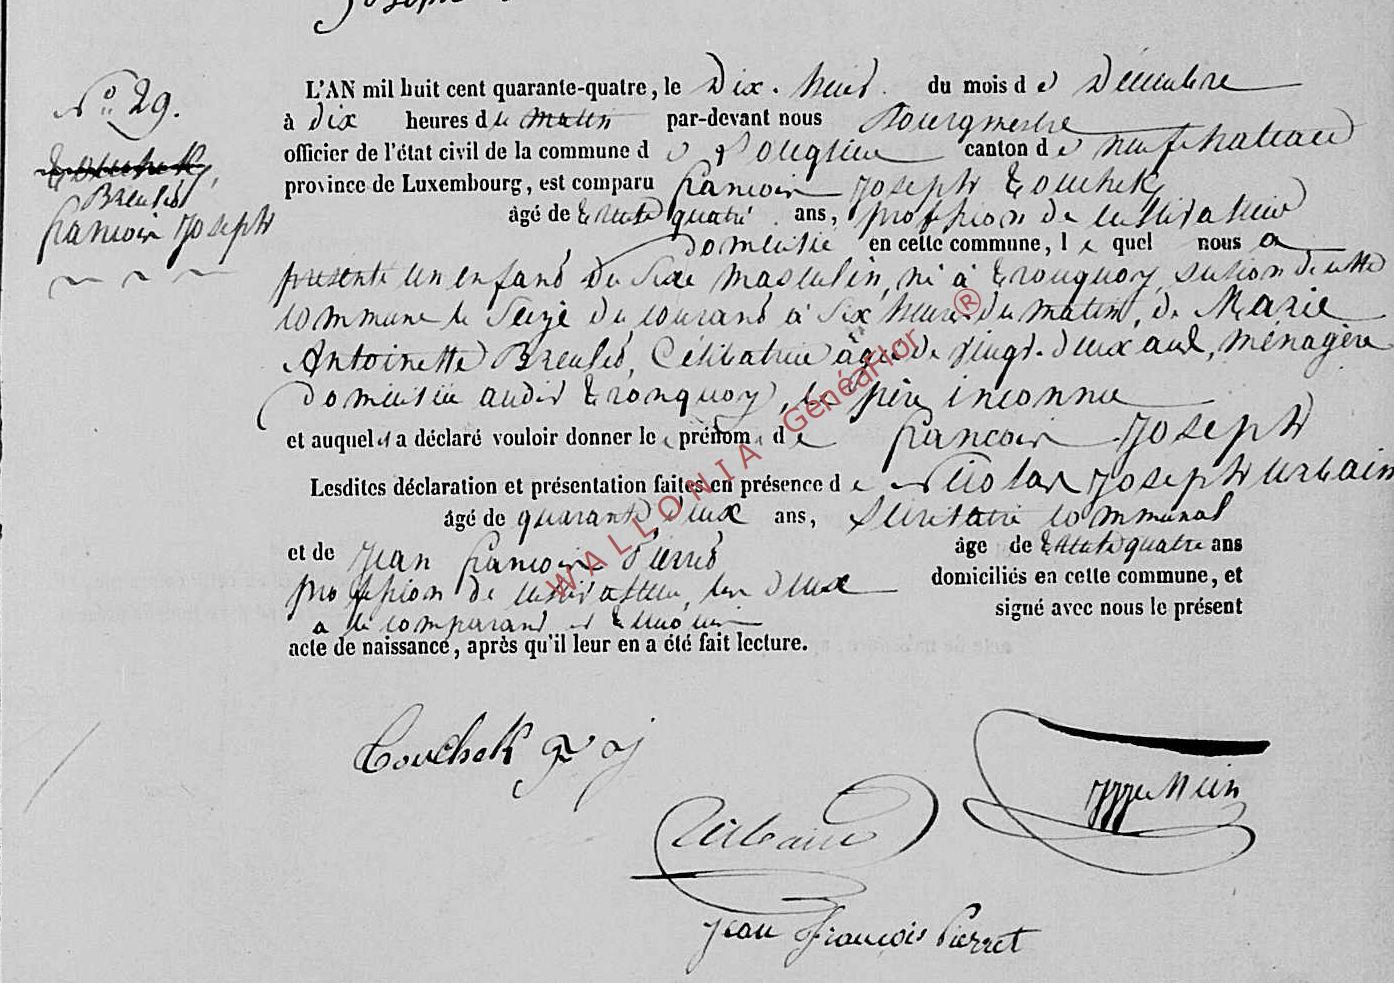 Joseph
N° 29.
Touchek,
Breulet
françois Joseph
L'AN mil huit cent quarante-quatre, le Dix-huit du mois d e Décembre
à dix heures d u matin par-devant nous Bourgmestre
officier de l'état civil de la commune d e canton d e neufchateau
province de Luxembourg, est comparu françois Joseph Touchek
âgé de trente quatre ans, profession de instituteur
domicilié en cette commune, l e quel nous a
présenté un enfant du sexe masculin, né à tronquoy, section de cette
commune le seize du courant à six heures du matin, de Marie
Antoinette Breulet, Célibataire âgée de vingt-deux ans, ménagère
domiciliée audit tronquoy, le père inconnu
et auquel il a déclaré vouloir donner le prénom d e françois Joseph
Lesdites déclaration et présentation faites en présence d e Nicolas Joseph urbain
âgé de quarante deux ans, secrétaire communal
et de Jean françois Pierret âgé de trente quatre ans
profession de instituteur, les deux domiciliés en cette commune, et
a le comparant et témoins signé avec nous le présent
acte de naissance, après qu'il leur en a été fait lecture.
Touchek
Urbain
Jean François Pierret
WALLONIA GenéaFlor ®